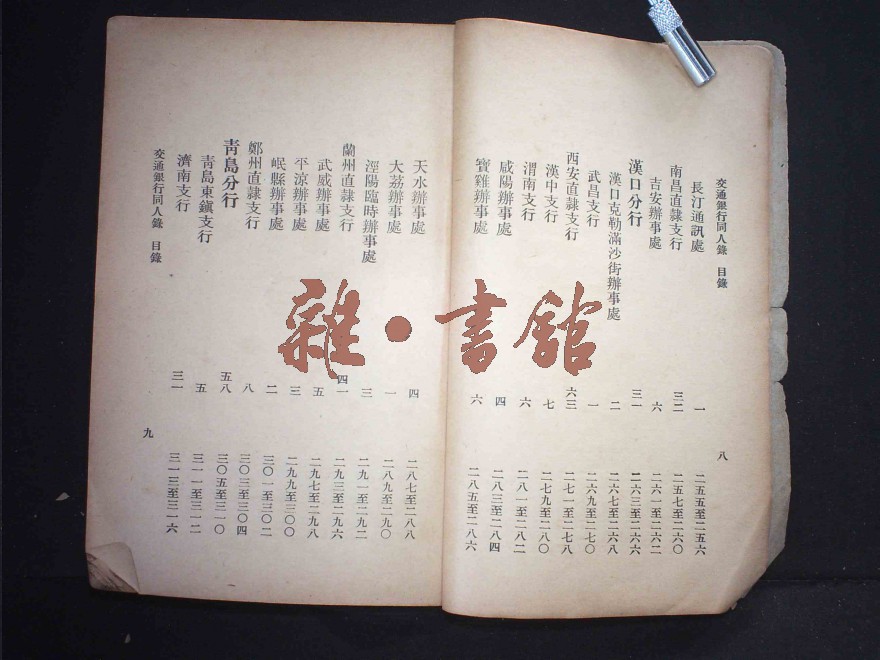 交通銀行同人錄 目錄
八
長汀通訊處 一 二五五至二五六
南昌直隷支行 三二 二五七至二六〇
吉安辦事處 六 二六一至二六二
漢口分行 三一 二六三至二六六
漢口克勒滿沙街辦事處 二 二六七至二六八
武昌支行 一 二六九至二七〇
西安直隷支行 六三 二七一至二七八
漢中支行 七 二七九至二八〇
渭南支行 六 二八一至二八二
咸陽辦事處 四 二八三至二八四
寶雞辦事處 六 二八五至二八六
天水辦事處 四 二八七至二八八
大荔辦事處 一 二八九至二九〇
涇陽臨時辦事處 三 二九一至二九二
蘭州直隷支行 四一 二九三至二九六
武威辦事處 五 二九七至二九八
平涼辦事處 三 二九九至三〇〇
岷縣辦事處 二 三〇一至三〇二
鄭州直隷支行 八 三〇三至三〇四
青島分行 五八 三〇五至三一〇
青島東鎮支行 五 三一一至三一二
濟南支行 三一 三一三至三一六
交通銀行同人錄 目錄
九
雜·書館